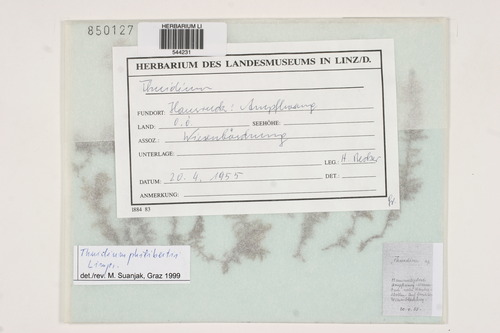 850127
HERBARIUM LI
544231
HERBARIUM DES LANDESMUSEUMS IN LINZ/D.
Thuidium
FUNDORT: Hausruck: Ampflwang
LAND: O.Ö. SEEHÖHE:
ASSOZ.: Wiesenböschung
UNTERLAGE:
LEG.: H.
DATUM: 20.4.1955 DET.:
ANMERKUNG:
1884 83
Thuidium philibertii
Limpr.
det./rev. M. Suanjak, Graz 1999
Thuidium